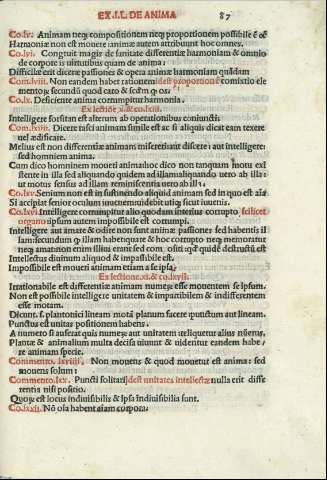 EX.I.L. DE ANIMA 87
Co.lv. Animam neq; compositionem neq; proportionem possibile ē eē
Harmoniæ non est mouere: animæ autem attribuunt hoc omnes.
Co.lvi. Congruit magis de sanitate differētiæ harmoniam & omnio
de corpore is uirtutibus quam de anima:
Difficile erit dicere passiones & opera animæ harmoniam quādam
Com.lviii. Non eandem habet rationem idest proportionē comixtio ele
mentorū; secundū quod caro & secdm q os:
Co.lx. Deficiente anima corrumpitur harmonia.
Ex lectione .x. & co.lxiii.
Intelligere forsitan est alterum ab operationibus coniuncti:
Com.lxiiii. Dicere irasci animam simile est ac si aliquis dicit eam texere
uel ædificare.
Melius est non differentiæ animam misereri aut discere: aut intelligere:
sed hominem anima.
Cum dico hominem moueri anima hoc dico non tanquam motu exi
stente in illa sed aliquando quidem ad illam aliquando uero ab illa:
ut motus sensus ad illam reminiscentia uero ab illa:
Co.lxv. Senium non est in sustinendo aliquid animam sed in quo est aīa
Si accipiat senior oculum iuuenem uidebit utiq; sicut iuuenis.
Co.lxvi. Intelligere corrumpitur alio quodam interius corrupto, scilicet
organo: ipsum autem impossibile est corrumpi.
Intelligere aut amare & odire non sunt animæ passiones sed habentis il
lam: secundum q illam habet quare & hoc corrupto neq; memoratur
neq; amat: non enim illius erant sed com̄ositi q;d quidē destructū est
Intellectus diuinum aliquod & impassibile est.
Impossibile est moueri animam etiam a se ipsa.
Ex lectione.xi.& co.lxvii.
Irrationabile est differentiæ animam numerū esse mouentem se ipsum.
Non est possibile intelligere unitatem & impartibilem & indifferentem
esse motam.
Dicunt .s. platonici lineam motā planum facere: punctum aut lineam.
Punctus est unitas positionem habens.
A numero si auferat quis numerū aut unitatem relinquetur alius nūerus.
Plantæ & animalium multa decisa uiuunt & uidentur eandem habe/
re animam specie.
Commento.lxviiii. Non mouens & quod mouetur est anima: sed
mouens solum:
Commento.lxx. Puncti solitarij idest unitates intellectæ nulla erit diffe
rentia nisi positio.
Quo;ū est locus indiuisibilis & ipsa indiuisibilia sunt.
Co.lxxii. Nō oīa habent aīam corpora: